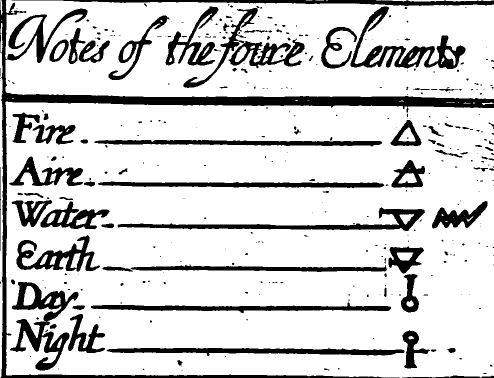 Notes of the foure Elements
Fire.
Aire.
Water.
Earth
Day.
Night